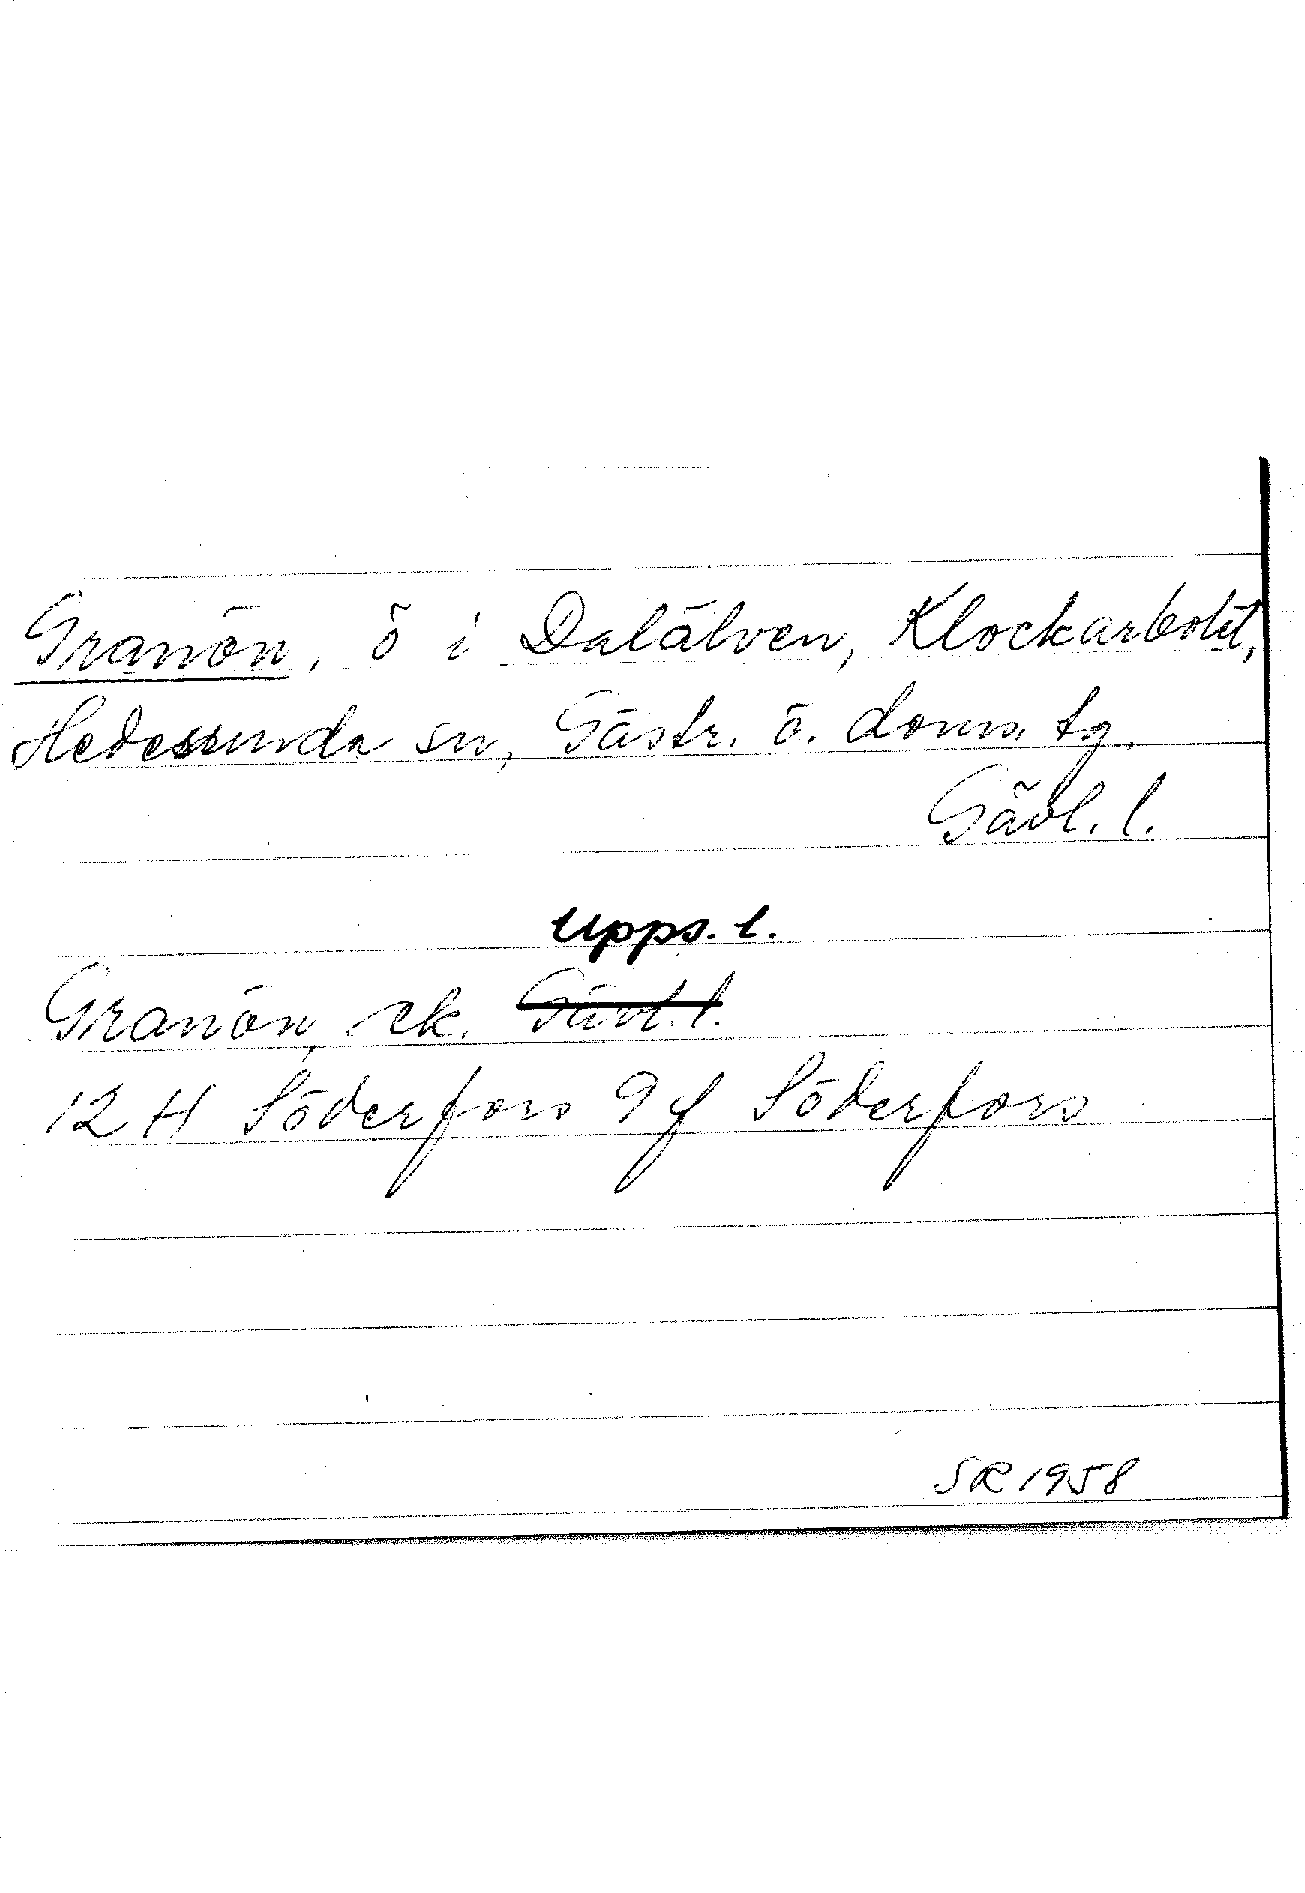 Granön, ö i Dalälven, Klockarbolet,
Hedesunda sn, Gästr. ö. doms. tg.
Gävl. l.
Upps. l.
Granön, ek. Gävl. l.
12 H Söderfors 9f Söderfors
SR 1958